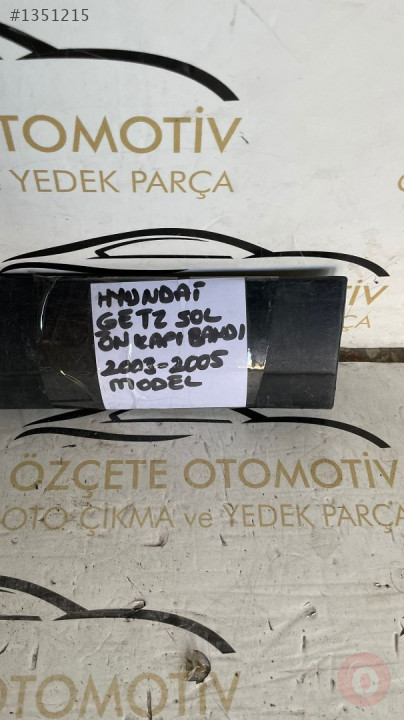 #1351215
OTOMOTİV
YEDEK PARÇA
HYUNDAİ
GETZ SOL
ÖN KAPI BANDI
2003-2005
MODEL
ÖZÇETE OTOMOTİV
OTO ÇIKMA ve YEDEK PARÇA
OTOMOTİV